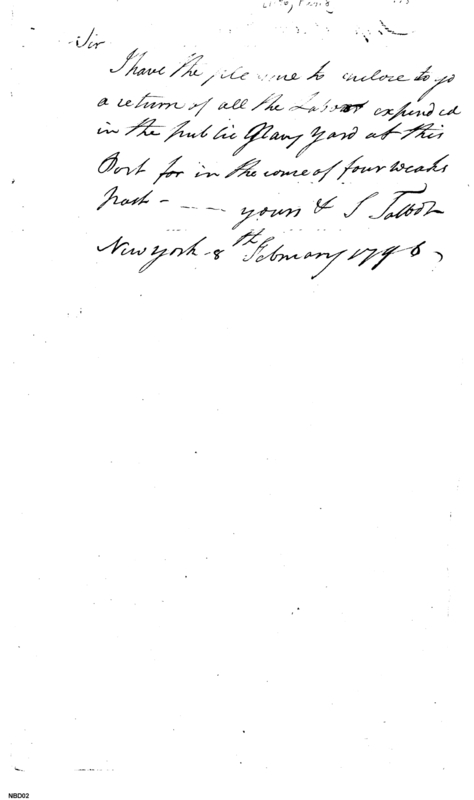 Sir
I have the pleasure to enclose to yo
a return of all the Labor expended
in the public Yard at this
Port for in the course of four weaks
past - - - yours & S Talbot
New york 8th February 1796
NBD02